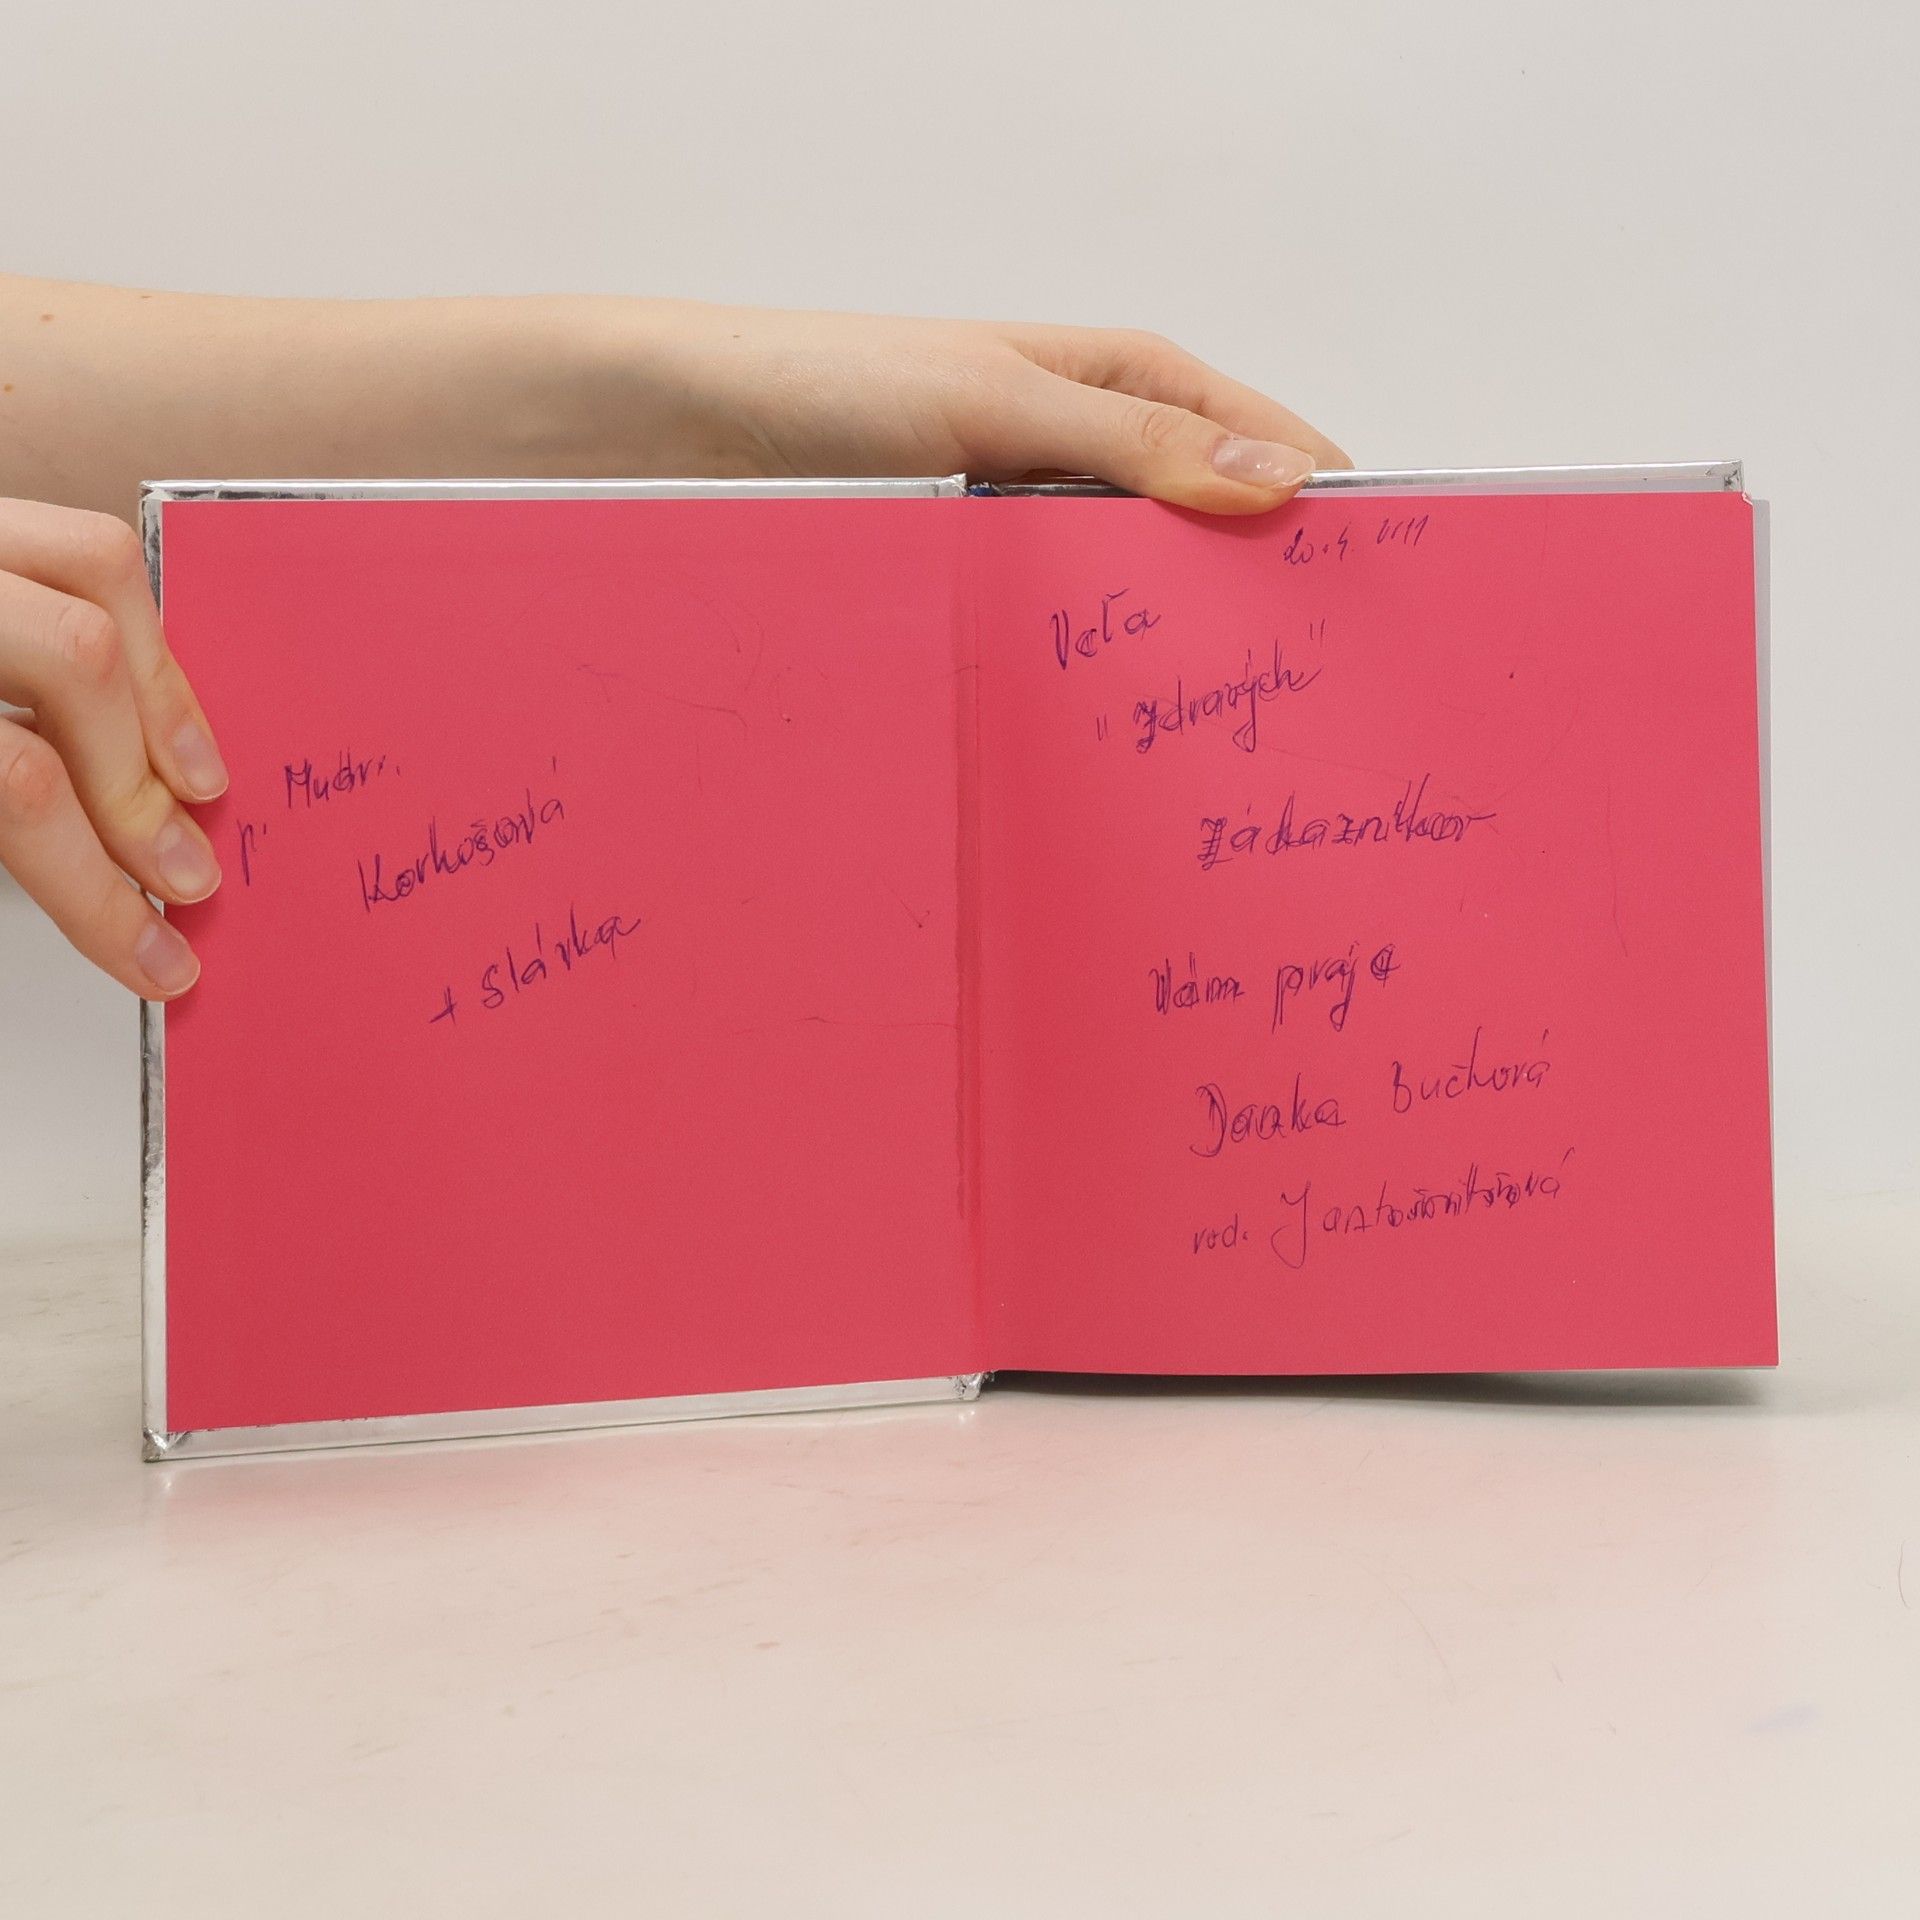 p. Mudr.
Korkošová
+ Slávka
20.4. 2011
Veľa
"zdravých"
zákazníkov
Vám praje
Danka Bučková
rod.